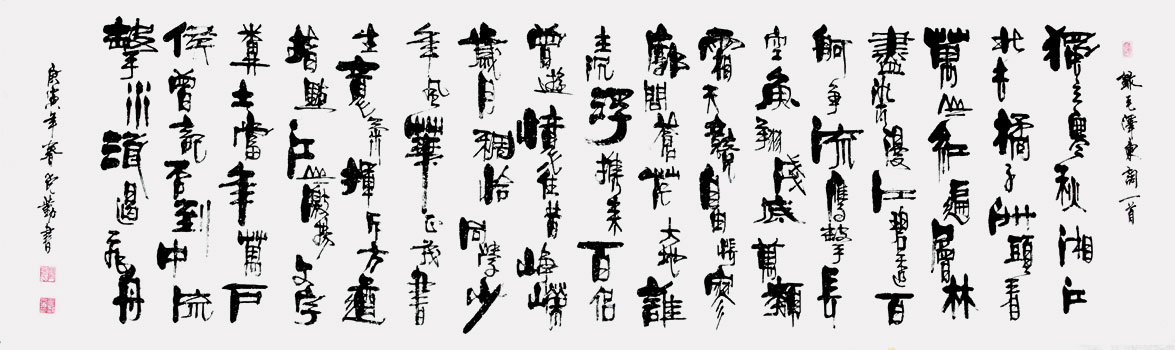 錄毛澤東詞一首
獨立寒秋湘江
北去橘子洲頭看
萬山紅遍層林
盡染漫江碧透百
舸爭流鷹擊長
空魚翔淺底萬類
霜天競自由悵寥
廓問蒼茫大地誰
主沉浮攜來百侶
曾遊憶往昔崢嶸
歲月稠恰同學少
年風華正茂書
生意氣揮斥方遒
指點江山激揚文字
糞土當年萬戶
侯曾記否到中流
擊水浪遏飛舟
庚寅年春勤書